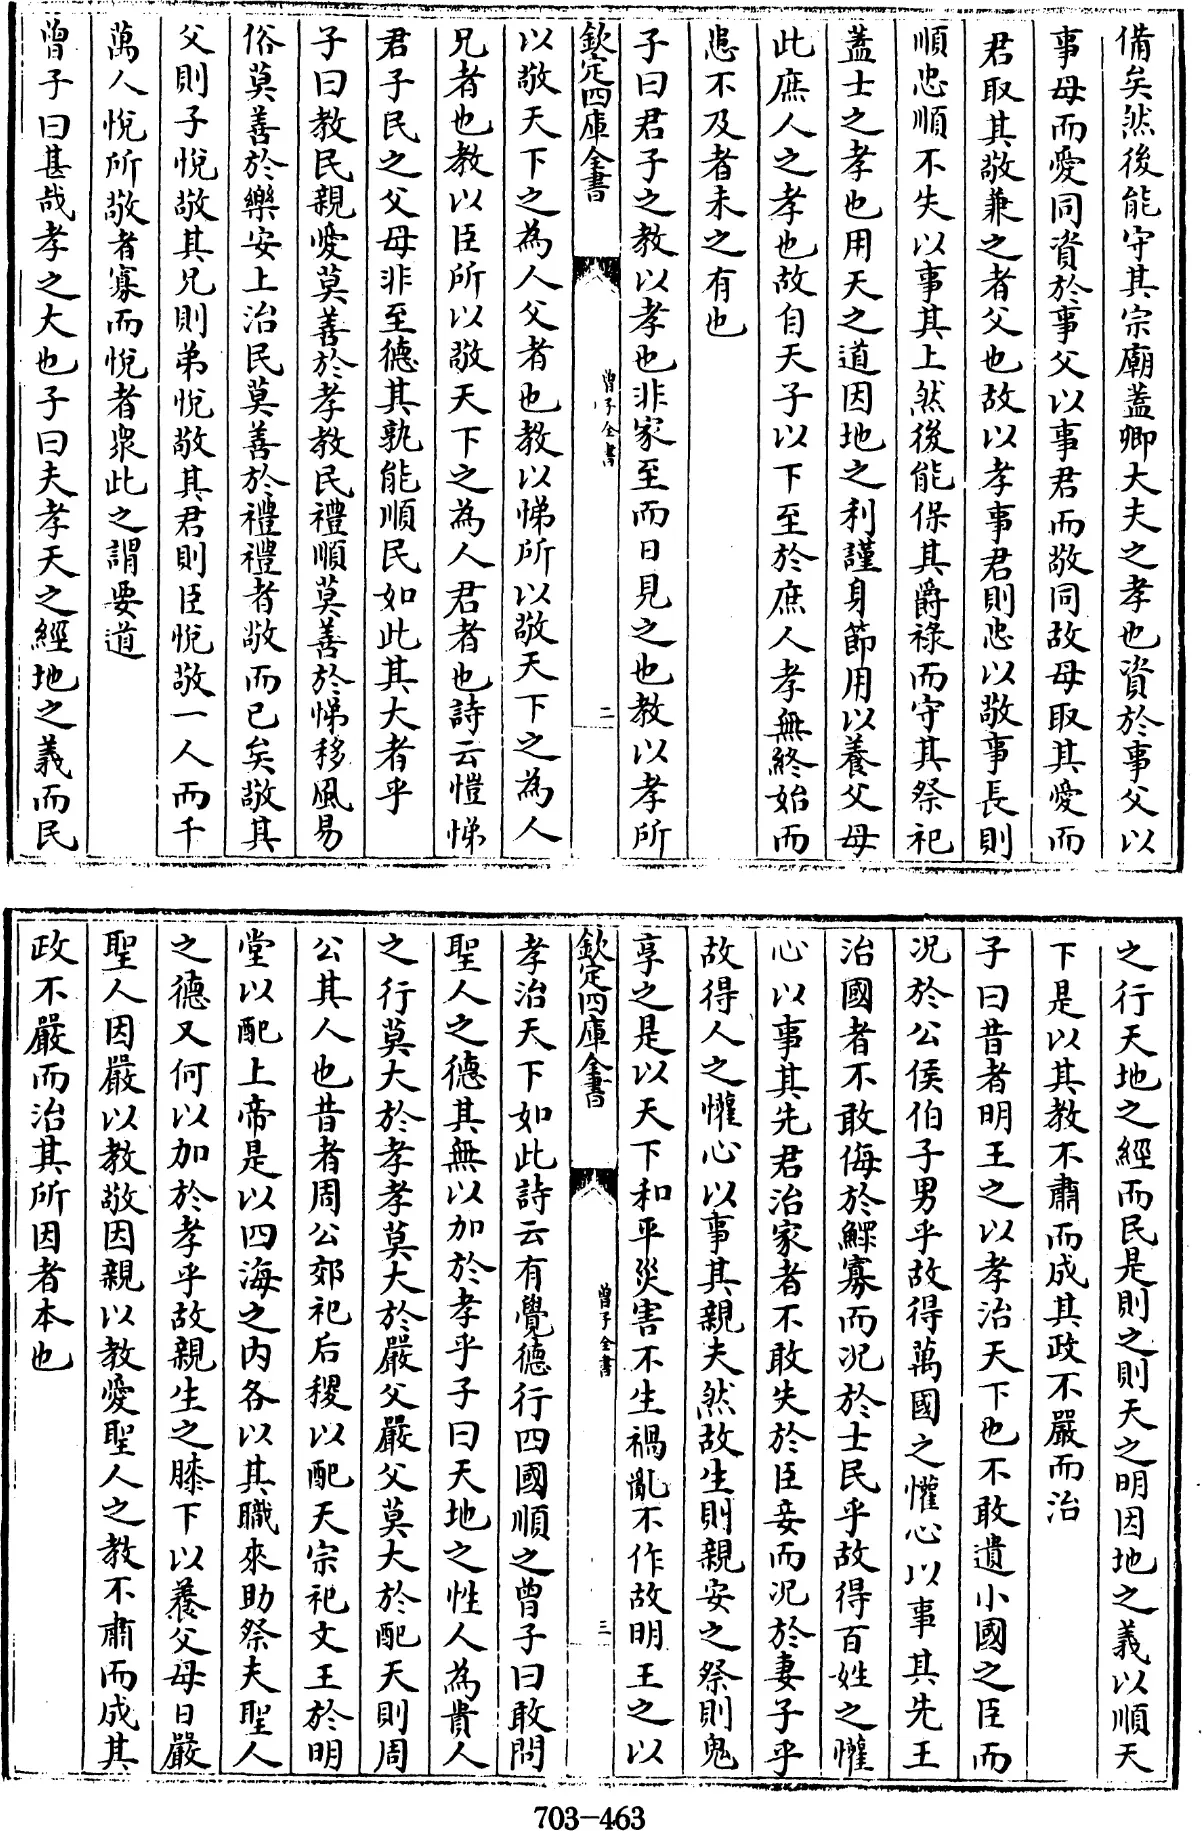 備矣然後能守其宗廟蓋卿大夫之孝也資於事父以
事母而愛同資於事父以事君而敬同故母取其愛而
君取其敬兼之者父也故以孝事君則忠以敬事長則
順忠順不失以事其上然後能保其爵祿而守其祭祀
蓋士之孝也用天之道因地之利謹身節用以養父母
此庶人之孝也故自天子以下至於庶人孝無終始而
患不及者未之有也
子曰君子之教以孝也非家至而日見之也教以孝所
欽定四庫全書
曾子全書
二
以敬天下之為人父者也教以悌所以敬天下之為人
兄者也教以臣所以敬天下之為人君者也詩云愷悌
君子民之父母非至德其孰能順民如此其大者乎
子曰教民親愛莫善於孝教民禮順莫善於悌移風易
俗莫善於樂安上治民莫善於禮禮者敬而已矣敬其
父則子悅敬其兄則弟悅敬其君則臣悅敬一人而千
萬人悅所敬者寡而悅者衆此之謂要道
曾子曰甚哉孝之大也子曰夫孝天之經地之義而民
之行天地之經而民是則之則天之明因地之義以順天
下是以其教不肅而成其政不嚴而治
子曰昔者明王之以孝治天下也不敢遺小國之臣而
况於公侯伯子男乎故得萬國之懽心以事其先王
治國者不敢侮於鰥寡而况於士民乎故得百姓之懽
心以事其先君治家者不敢失於臣妾而况於妻子乎
故得人之懽心以事其親夫然故生則親安之祭則鬼
享之是以天下和平災害不生禍亂不作故明王之以
欽定四庫全書
曾子全書
三
孝治天下如此詩云有覺德行四國順之曾子曰敢問
聖人之德其無以加於孝乎子曰天地之性人為貴人
之行莫大於孝孝莫大於嚴父嚴父莫大於配天則周
公其人也昔者周公郊祀后稷以配天宗祀文王於明
堂以配上帝是以四海之内各以其職來助祭夫聖人
之德又何以加於孝乎故親生之膝下以養父母日嚴
聖人因嚴以教敬因親以教愛聖人之教不肅而成其
政不嚴而治其所因者本也
703-463